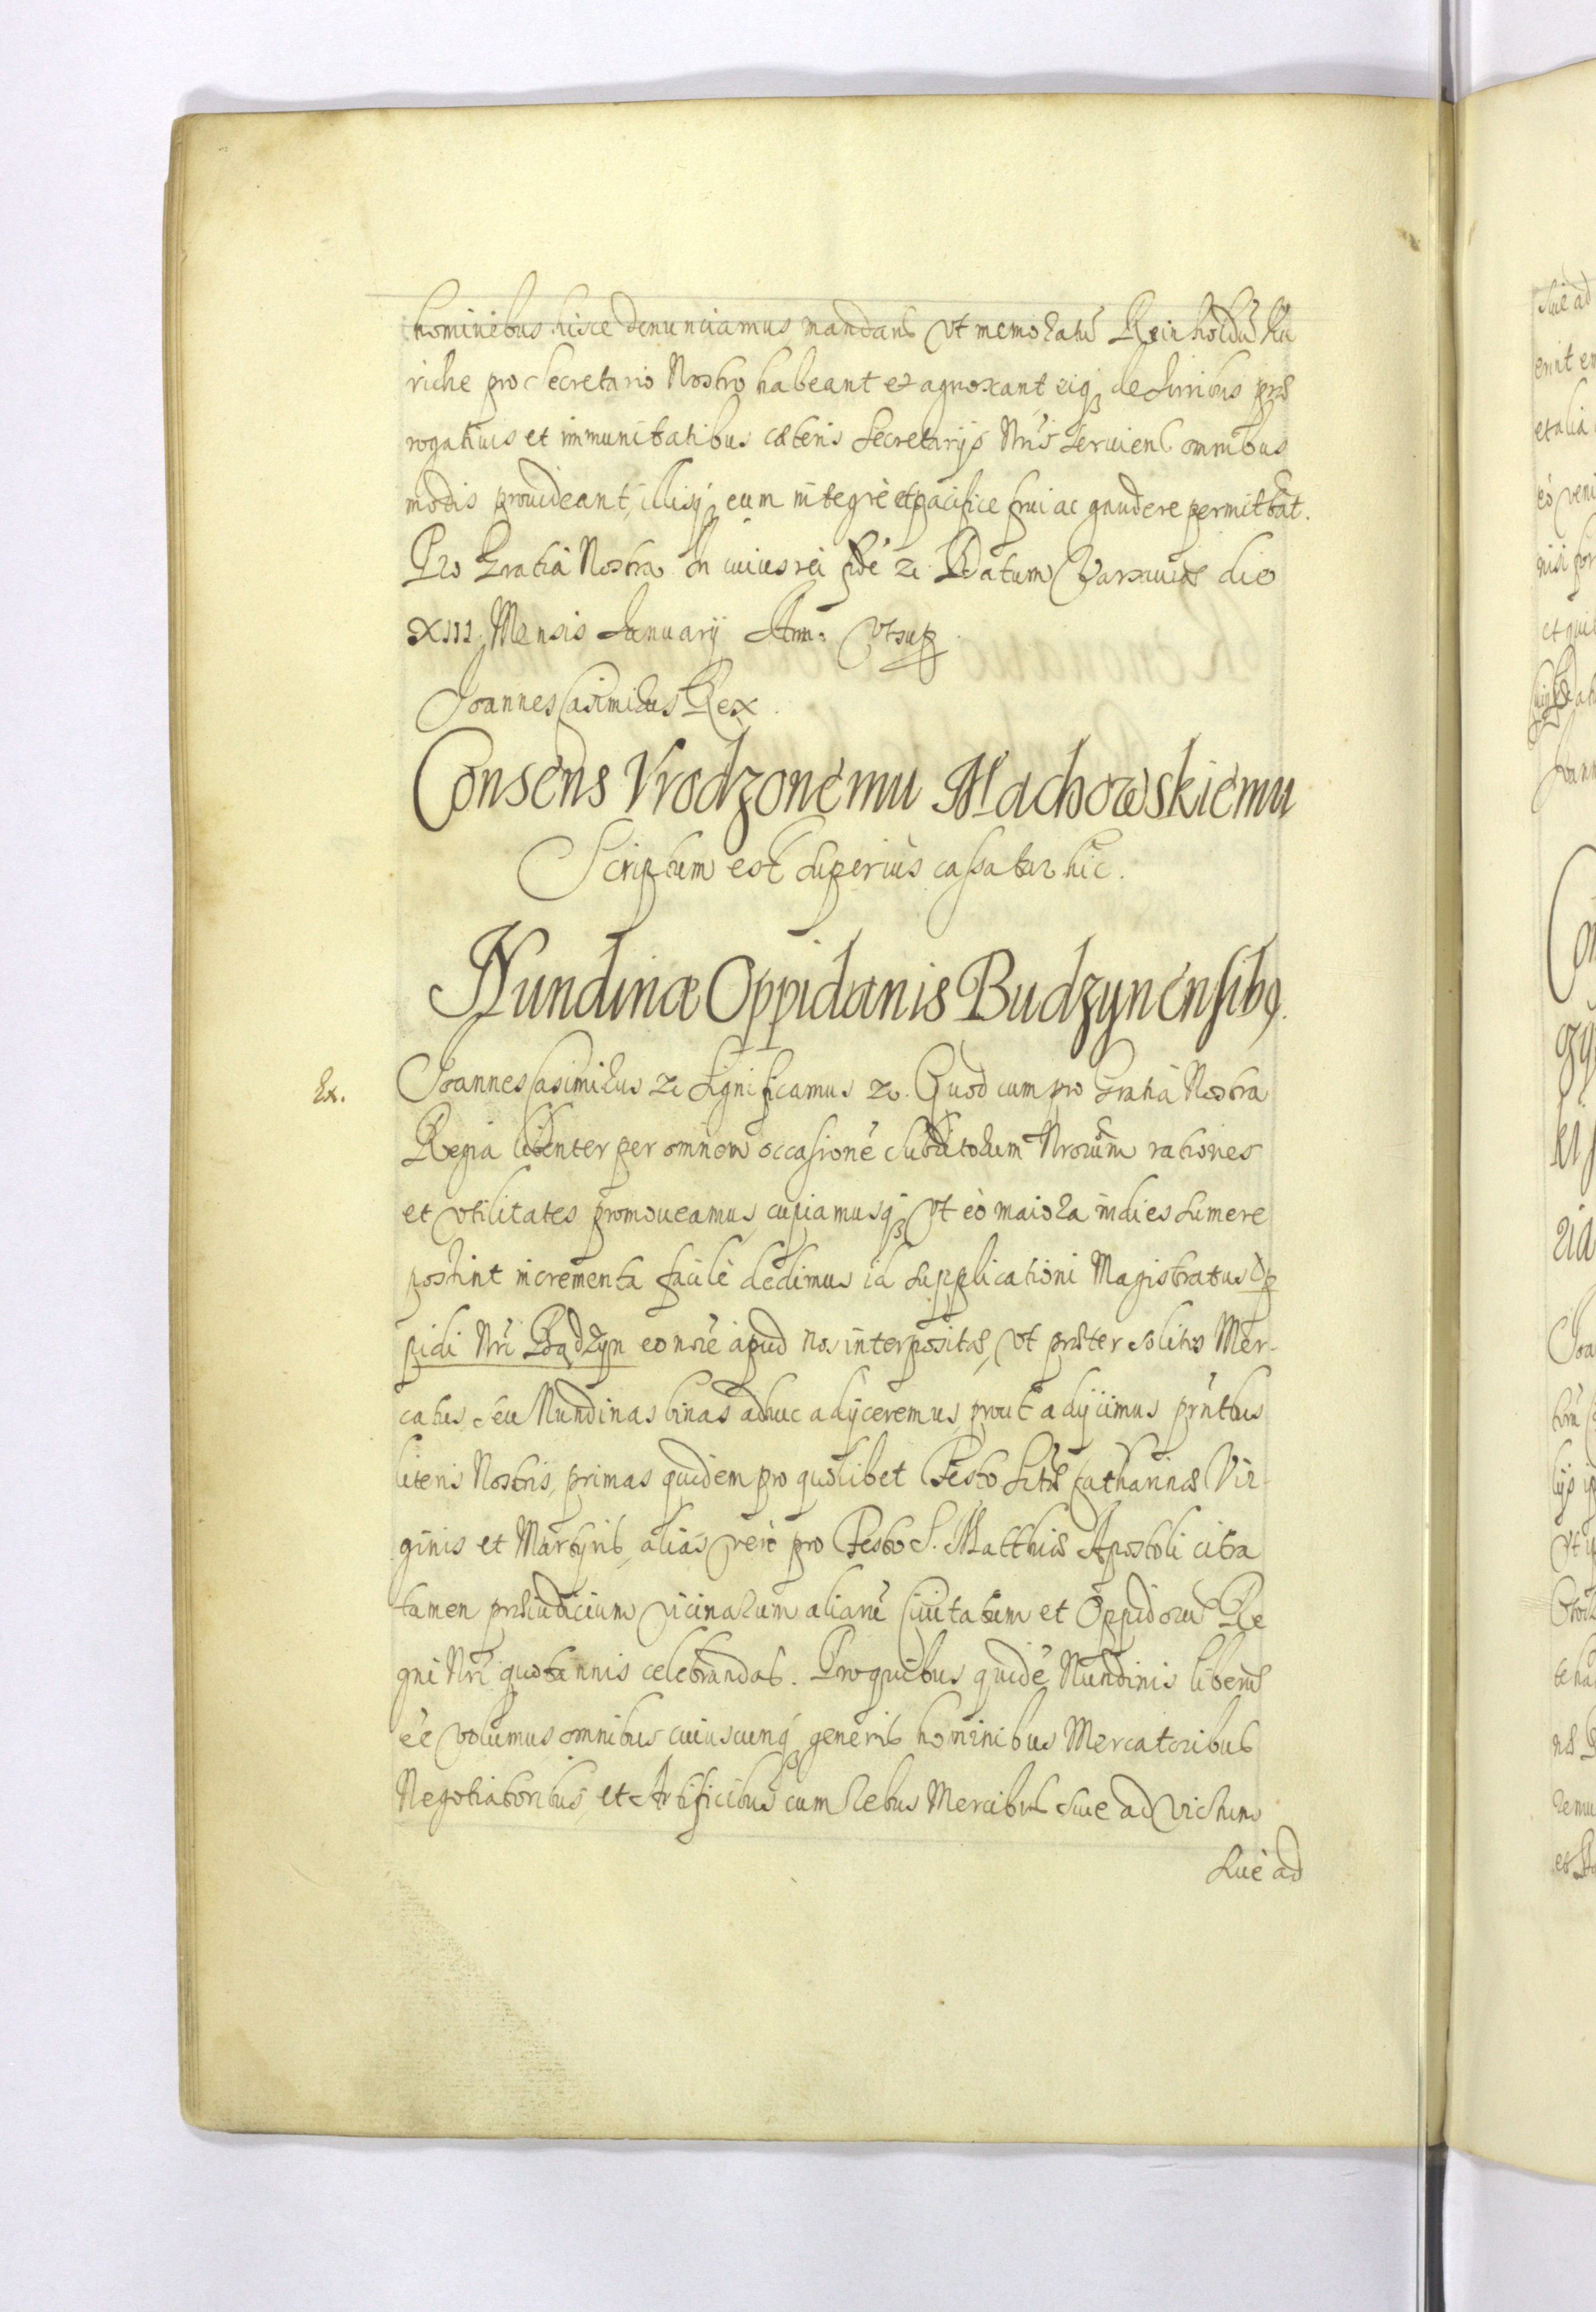 hominibus hisce denunciamus mandans vt memoratũ Reinholdũ Ku
riche pro Secretario Nostro habeant et agnoscant eiq3 de Iuribus præ
rogatiuis et immunitatibus cæteris Secretarijs Nr̃is seruient omnibus
modis prouideant, illisq3 eum integrè et pacifice frui ac gaudere permittãt.
Pro Gratia Nostra In cuius rei fidẽ etc Datum Varsauiæ die
XIII. Mensis January Ann: vt sup
Joannes Casimirus Rex.
Consens Vrodzonemu Machowskiemu
Scriptum est superius cassatur hic.
Nundinæ Oppidanis Budzynensib9.
Ex. Joannes Casimirus etc Significamus etc. Quod cum pro Gratia Nostra
Regia libenter per omnem occasionẽ Subditorum Nrorum rationes
et vtilitates promoueamus, cupiamusq3 vt eò maiora indies sumere
possint incrementa facilè dedimus id supplicationi Magistratus Op
pidi Nri Bądzyn eo noiẽ apud nos interpositæ, vt præter solitos Mer-
catus seu Nundinas binas adhuc adijceremus, prout adijcimus prñtbus
literis Nostris, primas quidem pro quolibet Festo Sctæ Catharinæ Vir-
ginis et Martyris, alias verò pro Festo S. Matthiæ Apostoli citra
tamen præiudicium vicinarum aliarũ Ciuitatum et Oppidorũ Re
gni Nri quotannis celebrandas. Pro quibus quidẽ Nundinis liberũ
eẽ volumus omnibus cuiuscunq3 generis hominibus Mercatoribus
Negotiatoribus, et Artificibus cum rebus Mercibus siue ad victum
siuè ad